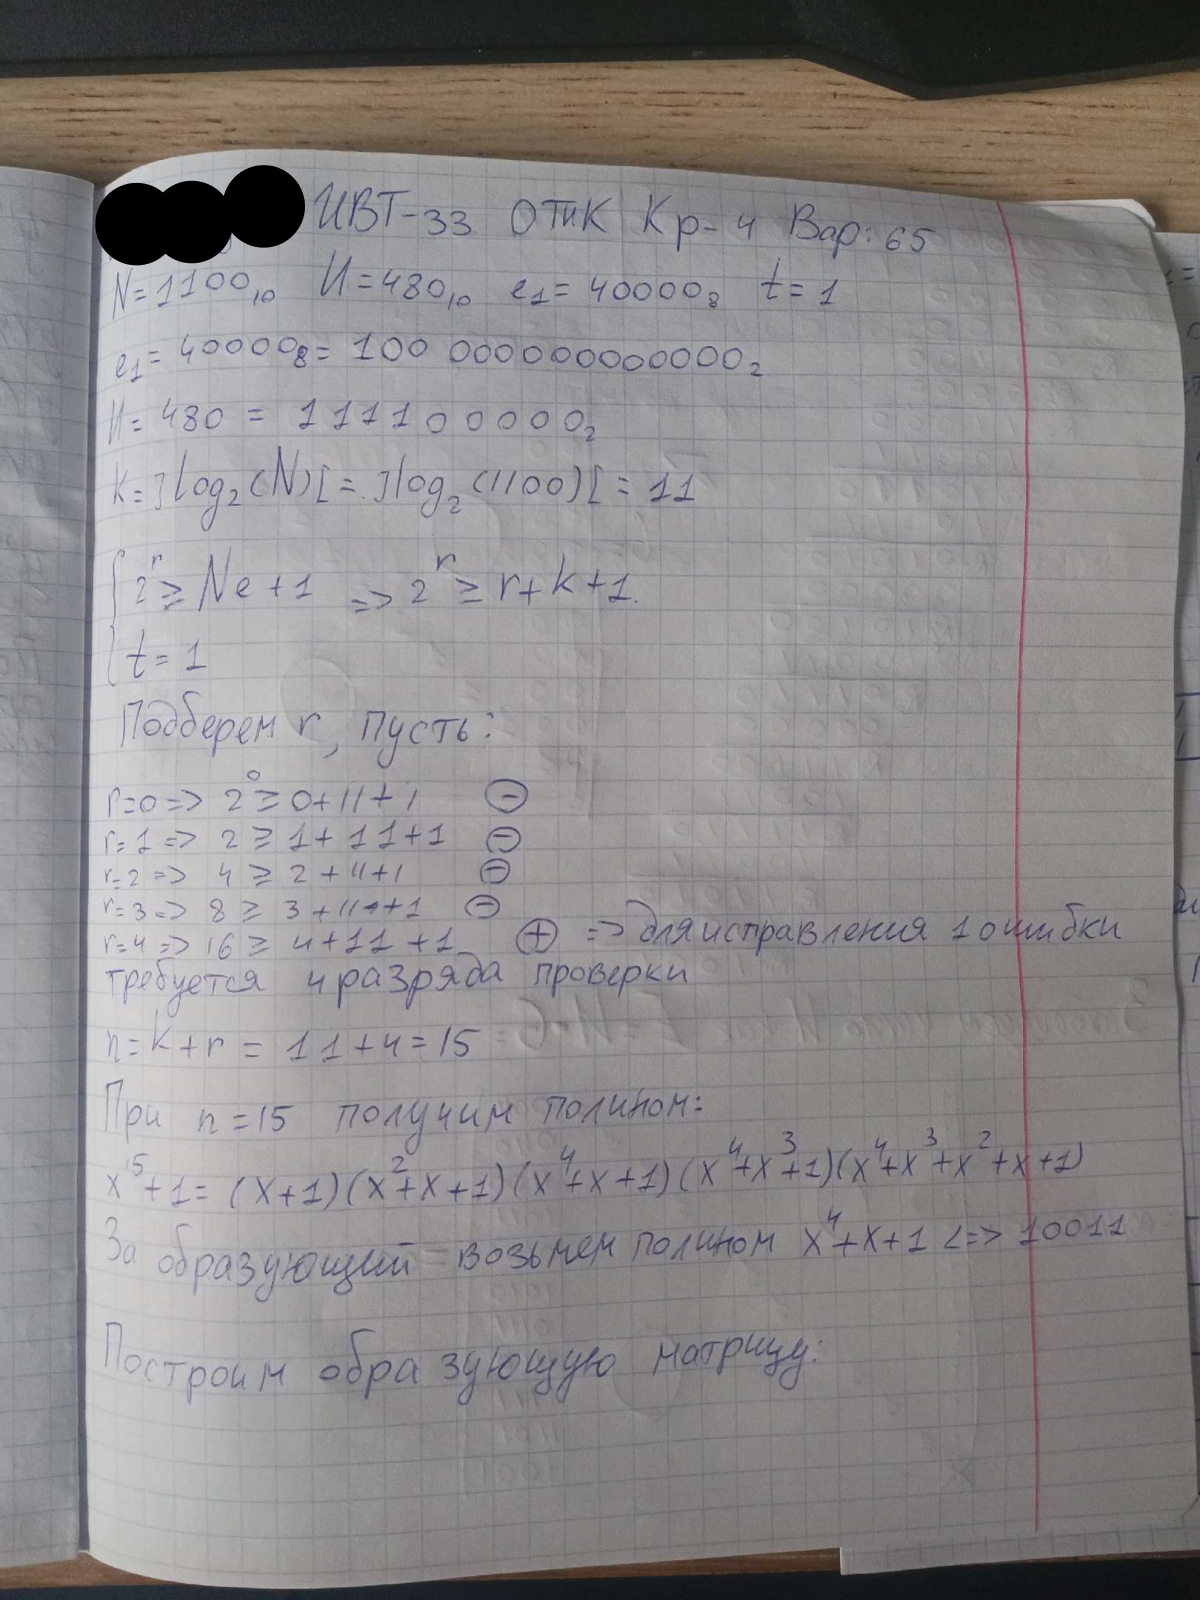 ИВТ-33 ОТиК Кр-4 Вар: 65
N=1100₁₀ И=480₁₀ e₁=40000₈ t=1
e₁=40000₈=100 000000000000₂
И=480=111100000₂
k=]log₂(N)[=]log₂(1100)[=11
{2^r ≥ Ne+1 => 2^r ≥ r+k+1.
{t=1
Подберем r, пусть:
r=0 => 2^0 ≥ 0+11+1 ⊖
r=1 => 2 ≥ 1+11+1 ⊖
r=2 => 4 ≥ 2+11+1 ⊖
r=3 => 8 ≥ 3+11+1 ⊖
r=4 => 16 ≥ 4+11+1 ⊕ => для исправления 1 ошибки
требуется 4 разряда проверки
n=k+r=11+4=15
При n=15 получим полином:
x^15+1=(x+1)(x^2+x+1)(x^4+x+1)(x^4+x^3+1)(x^4+x^3+x^2+x+1)
За образующий возьмем полином x^4+x+1 <=> 10011
Построим образующую матрицу: